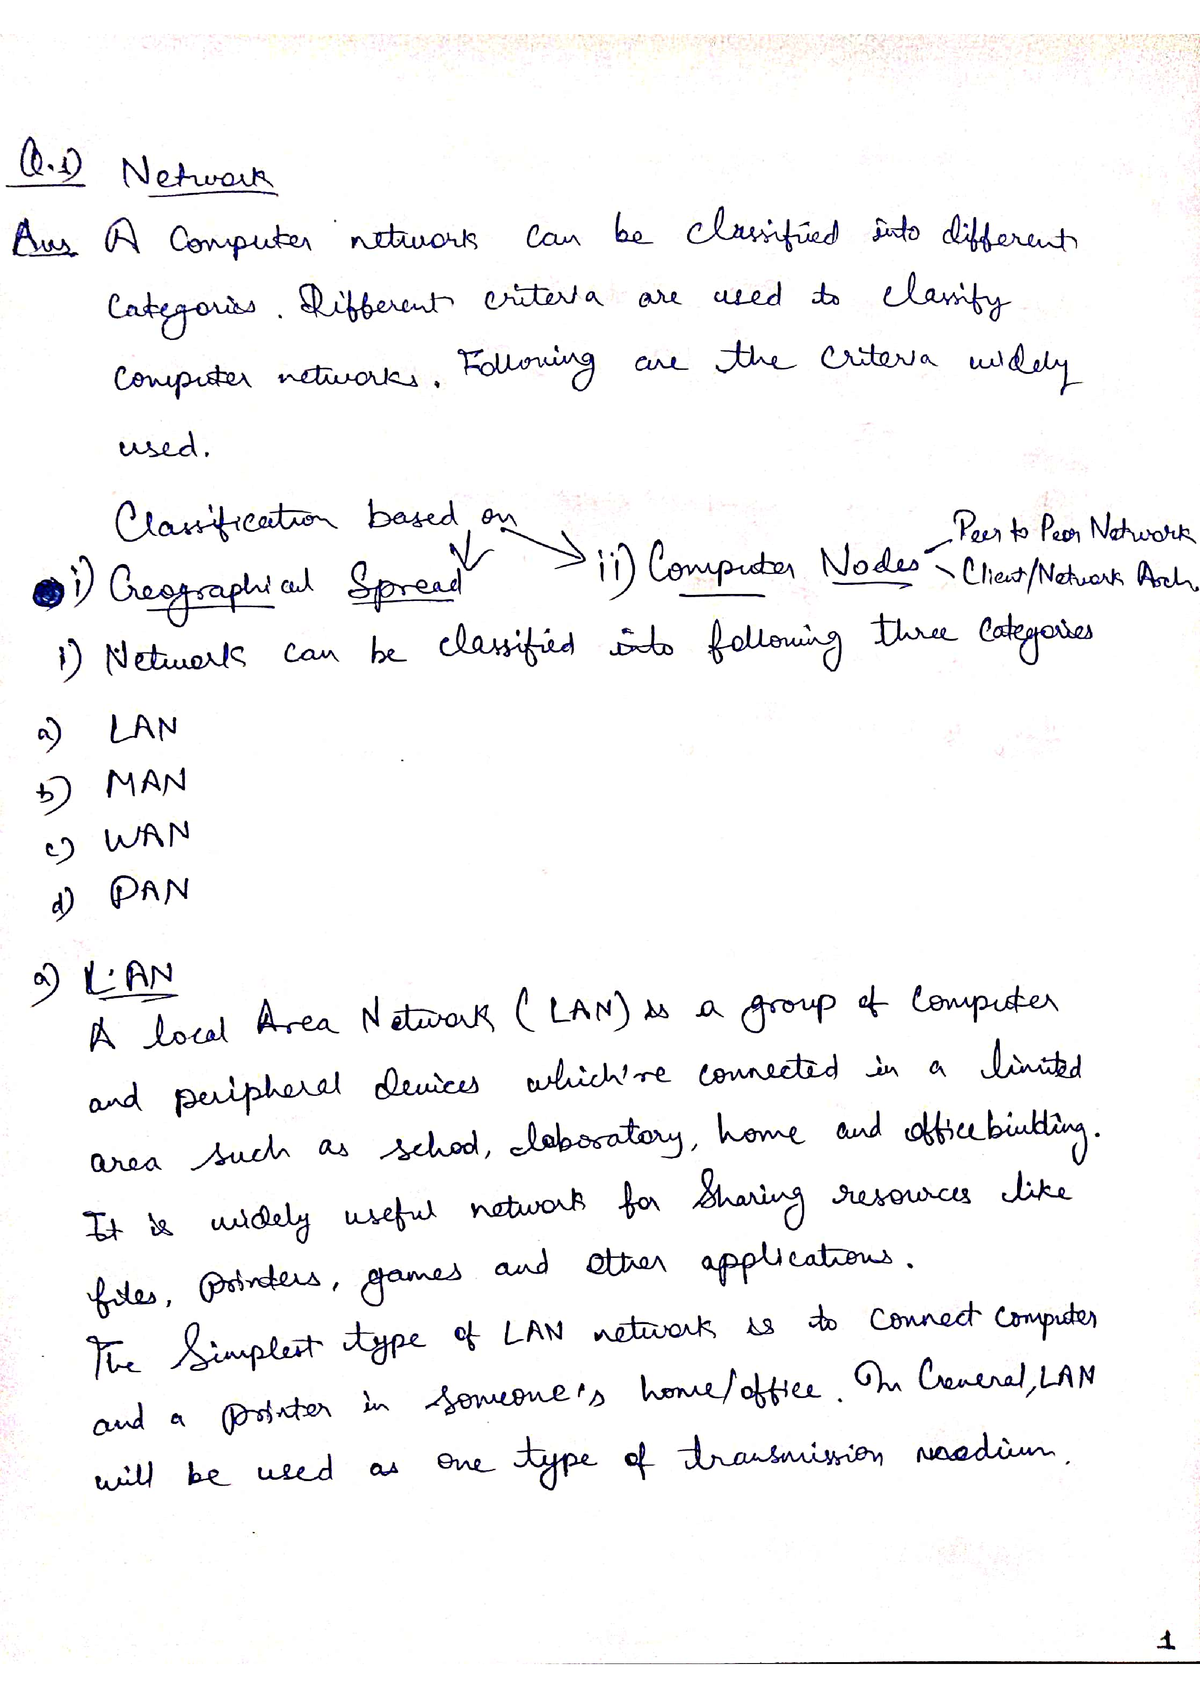 Q.1) Network
Ans A Computer network can be classified into different
Categories. Different criteria are used to classify
Computer networks. Following are the criteria widely
used.
Classification based on
i) Geographical Spread ii) Computer Nodes Peer to Peer Network
Client/Network Arch.
i) Network can be classified into following three Categories
a) LAN
b) MAN
c) WAN
d) PAN
a) LAN
A local Area Network (LAN) is a group of Computer
and peripheral devices which're connected in a limited
area such as school, laboratory, home and office biulding.
It is widely useful network for Sharing resources like
files, printers, games and other applications.
The Simplest type of LAN network is to Connect Computer
and a printer in someone's home/office. In General, LAN
will be used as one type of transmission medium.
1